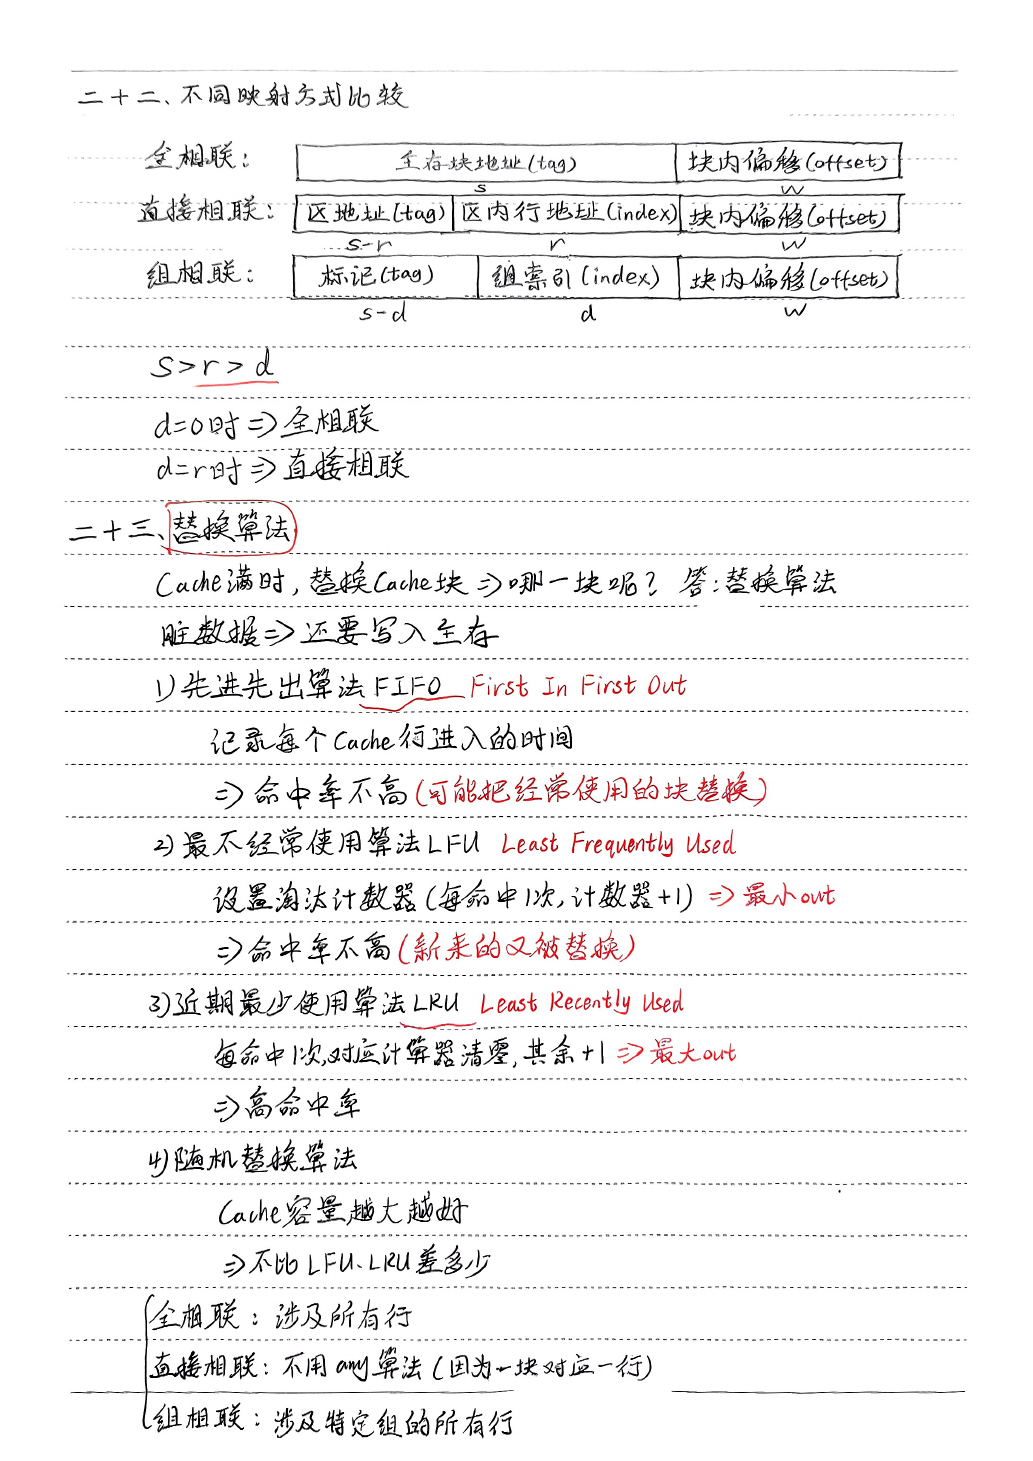 二十二、不同映射方式比较
全相联： 主存块地址(tag) 块内偏移(offset)
s w
直接相联： 区地址(tag) 区内行地址(index) 块内偏移(offset)
s-r r w
组相联： 标记(tag) 组索引(index) 块内偏移(offset)
s-d d w
s>r>d
d=0时⇒全相联
d=r时⇒直接相联
二十三、替换算法
Cache满时，替换Cache块⇒哪一块呢？ 答：替换算法
脏数据⇒还要写入主存
1)先进先出算法FIFO First In First Out
记录每个Cache行进入的时间
⇒命中率不高(可能把经常使用的块替换)
2)最不经常使用算法LFU Least Frequently Used
设置淘汰计数器(每命中1次,计数器+1)⇒最小out
⇒命中率不高(新来的又被替换)
3)近期最少使用算法LRU Least Recently Used
每命中1次,对应计算器清零,其余+1⇒最大out
⇒高命中率
4)随机替换算法
Cache容量越大越好
⇒不比LFU、LRU差多少
全相联：涉及所有行
直接相联：不用any算法(因为一块对应一行)
组相联：涉及特定组的所有行